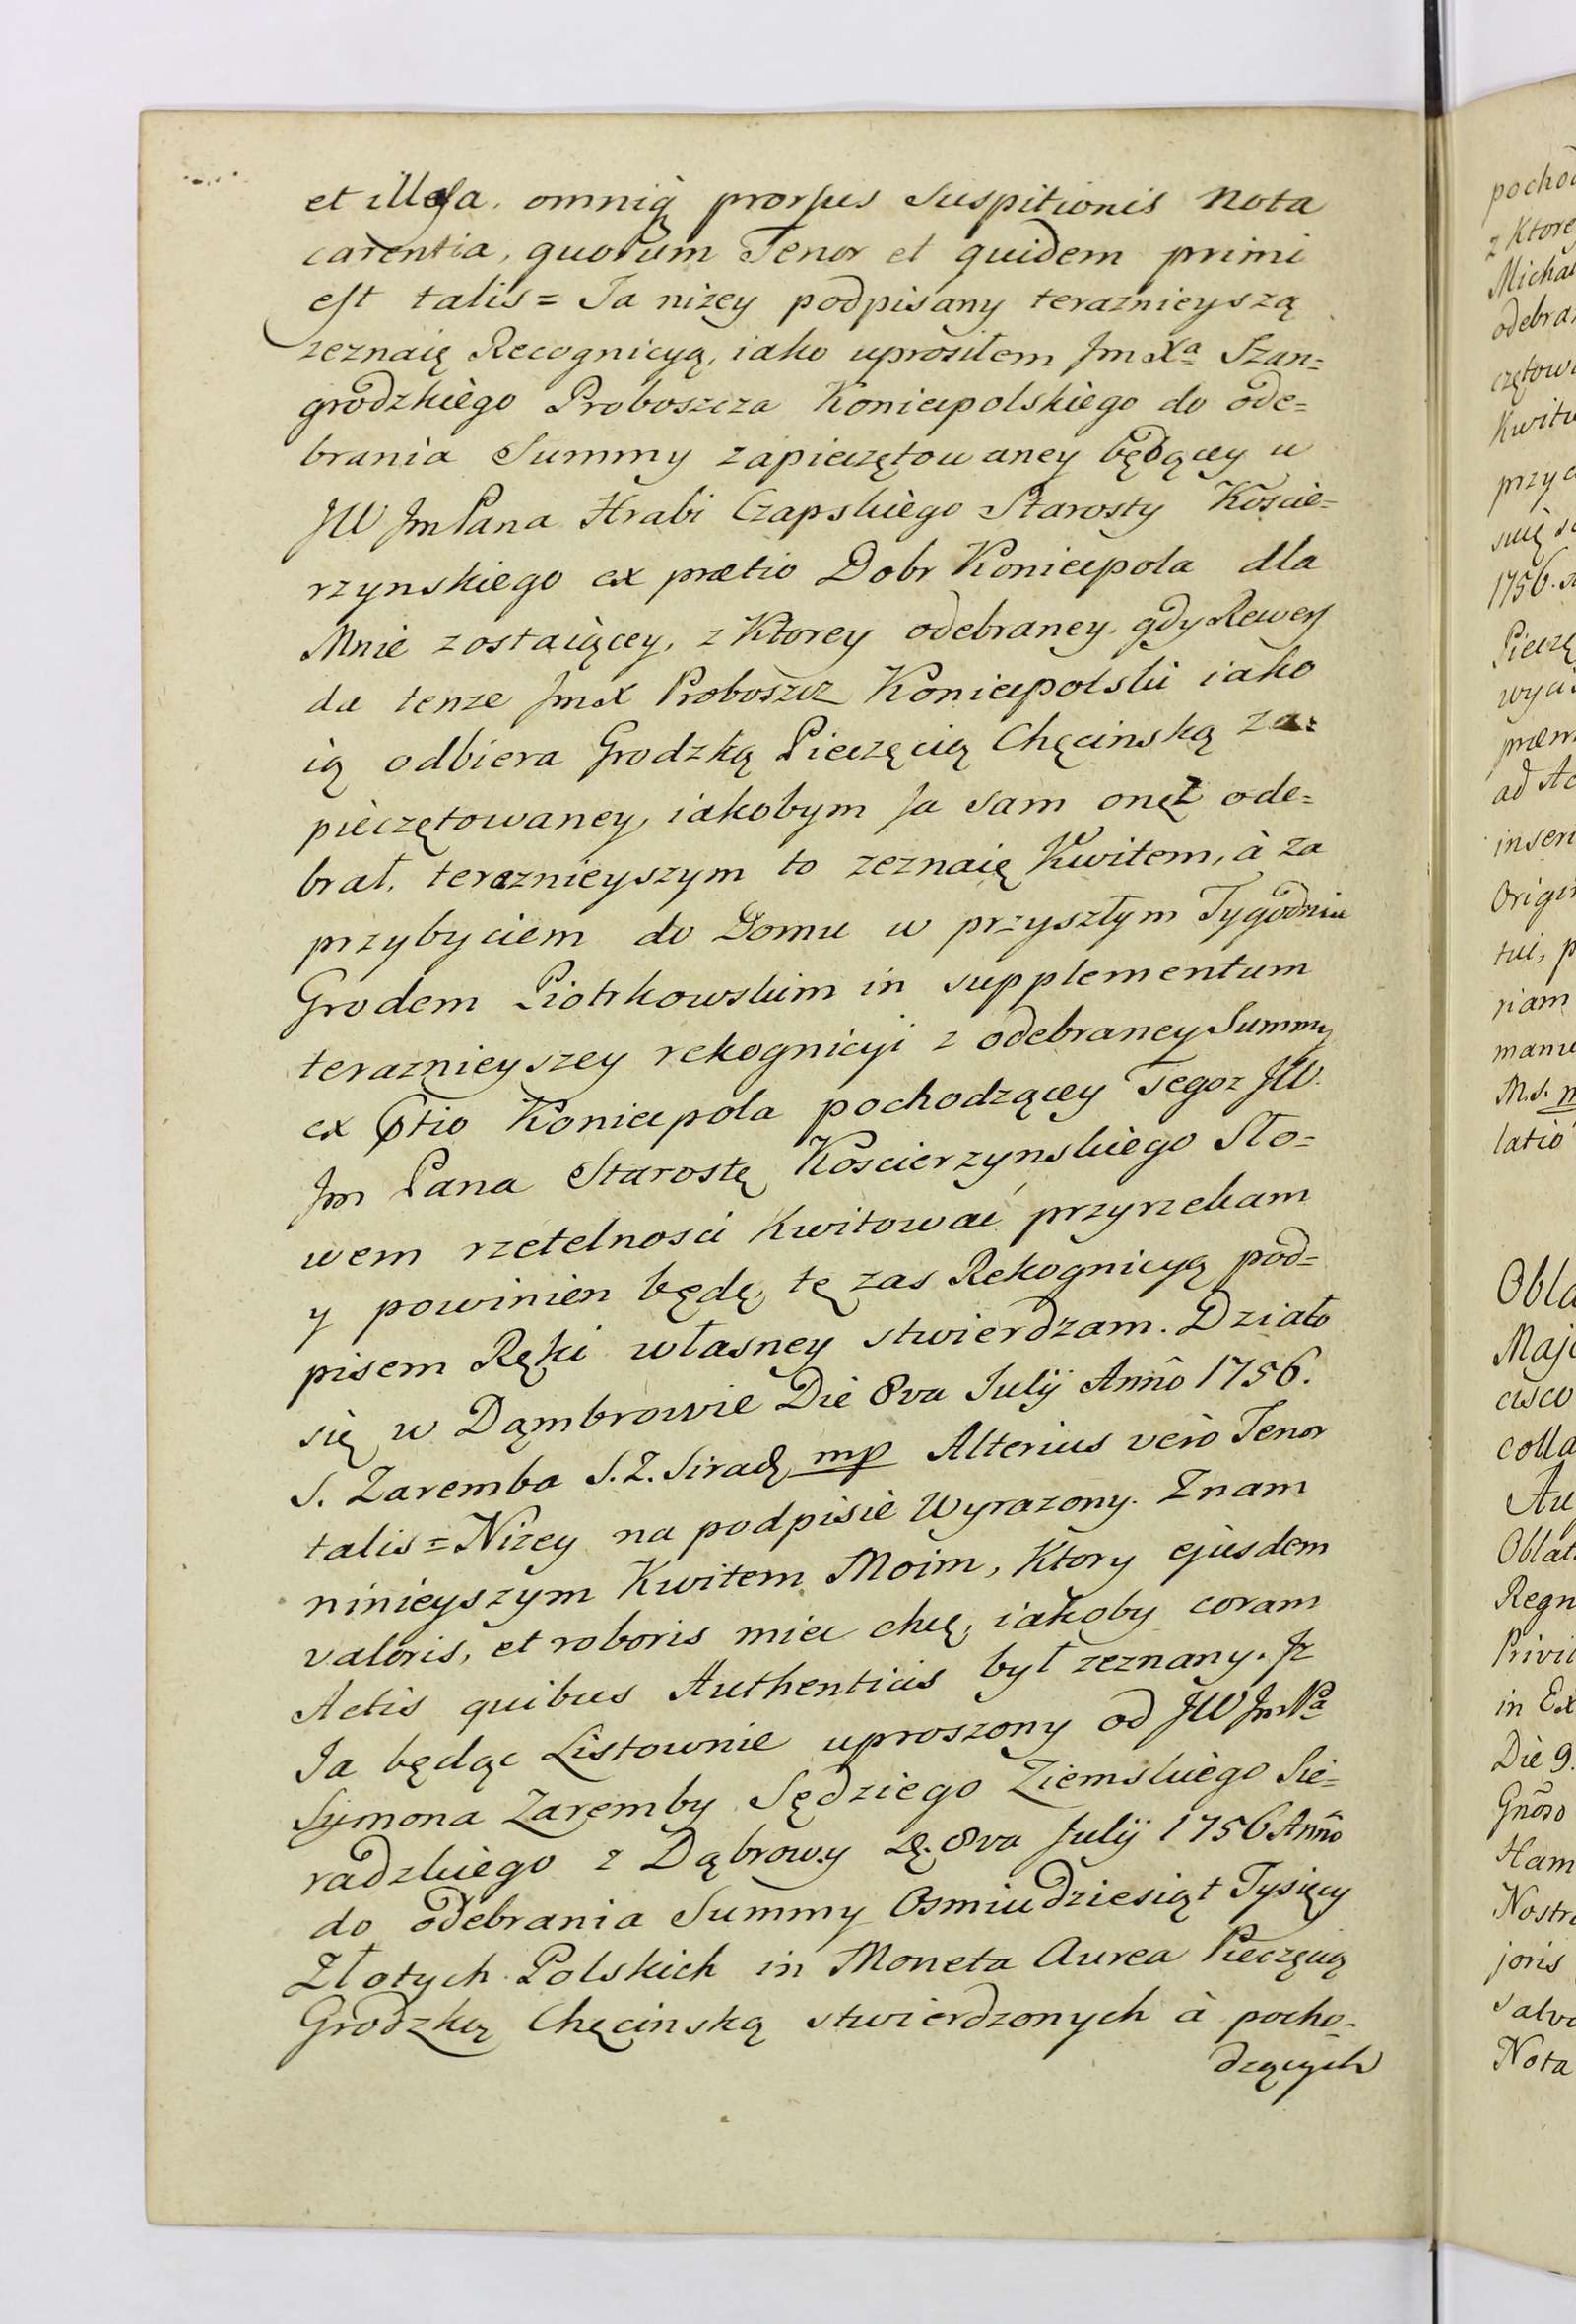 et illæsa, omniq̃ prorsus suspitionis nota
carentia, quorum Tenor et quidem primi
est talis = Ja niżey podpisany teraznieyszą
zeznaię Recognicyą, iako uprosiłem JmXa Szan=
grodzkiego Proboszcza Koniecpolskiego do ode=
brania Summy zapieczętowaney będącey u
JW JmPana Hrabi Czapskiego Starosty Koscie=
rzynskiego ex prætio Dobr Koniecpola dla
Mnie zostaiącey, z Ktorey odebraney, gdy Rewers
da tenze JmX Proboszcz Koniecpolski iako
ią odbiera Grodzką Pieczęcią Chęcinską za=
pieczętowaney, iakobym Ja sam onęż ode=
brał, teraznieyszym to zeznaię Kwitem, à za
przybyciem do Domu w przyszłym Tygodniu
Grodem Piotrkowskim in supplementum
teraznieyszey rekognicyi z odebraney Summy
ex ptio Koniecpola pochodzącey Tegoz JW.
Jm Pana Starostę Koscierzynskiego Sło=
wem rzetelnosci Kwitować przyrzekam
y powinien będę, tę zas Rekognicyą pod=
pisem Ręki własney stwierdzam. Działo
się w Dąmbrowie Die 8va Julij Anno 1756.
S. Zaremba S. Z. Sirad. mp Alterius vero Tenor
talis = Niżey na podpisie Wyrazony. Znam
ninieyszym Kwitem Moim, Ktory ejusdem
valoris, et roboris miec chcę, iakoby coram
Actis quibus Authenticis był zeznany. Jz
Ja będąc Listownie uproszony od JW JmPa
Symona Zaremby Sędziego Ziemskiego Sie=
radzkiego z Dąbrowy D. 8va Julij 1756 Anno
do odebrania Summy Osmiudziesiąt Tysięcy
Złotych Polskich in Moneta Aurea Pieczęcią
Grodzką Chęcinską stwierdzonych à pocho=
dzących
pochod
z Ktore
Micha
odebra
czętow
Kwitu
przy
1756.
Pieczę
præm
ad Ac
inser
Origi
tui, p
riam
manu
M.S.
latio
Obla
Maj
cisco
colla
Au
Oblat
Regn
Privi
in Ex
Die 9.
Gnoso
Ham
Nostr
joris
salv
Nota